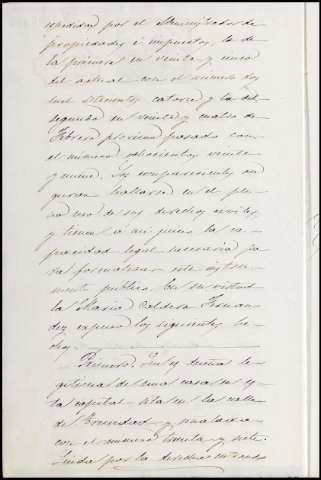 expedidas por el Administrador de
propiedades é impuestos, la de
la primera en veinte y cinco
del actual con el número dos
mil setecientos catorce y la del
segundo en veinte y cuatro de
Febrero próximo pasado con
el número ochocientos veinte
y nueve. Los comparecientes ase
guran hallarse en el ple
no uso de sus derechos civiles,
y tienen a mi juicio la ca
pacidad legal necesaria pa
ra formalizar este instru
mento público. En su virtud
la María Caldera Fernan
dez expuso los siguientes he
chos.
Primero. Que es dueña le
gitima de una casa en es
ta capital sita en la calle
de Brundad y señalada
con el número treinta y siete.
Linda por la derecha entrando